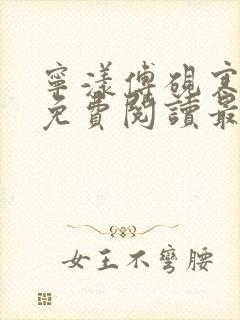 寧漾傅硯寒
免費閱讀最
女王不彎腰